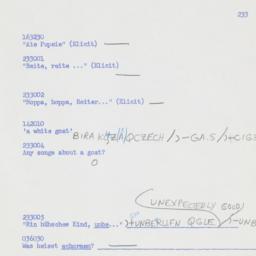 233
163230
"Ais Pupele" (Elicit)
233001
"Reite, reite ..." (Elicit)
233002
"Hoppa, hoppa, Reiter..." (Elicit)
142010
'a white goat' BIRA CZECH/>-GA.S/>+CIG
233004
Any songs about a goat?
O
(UNEXPECTEDLY GOOD)
233003
"Ein hübsches Kind, unbe..." >+UNBERLIFN QGLE/>-UNB
036030
Was heisst schormen?